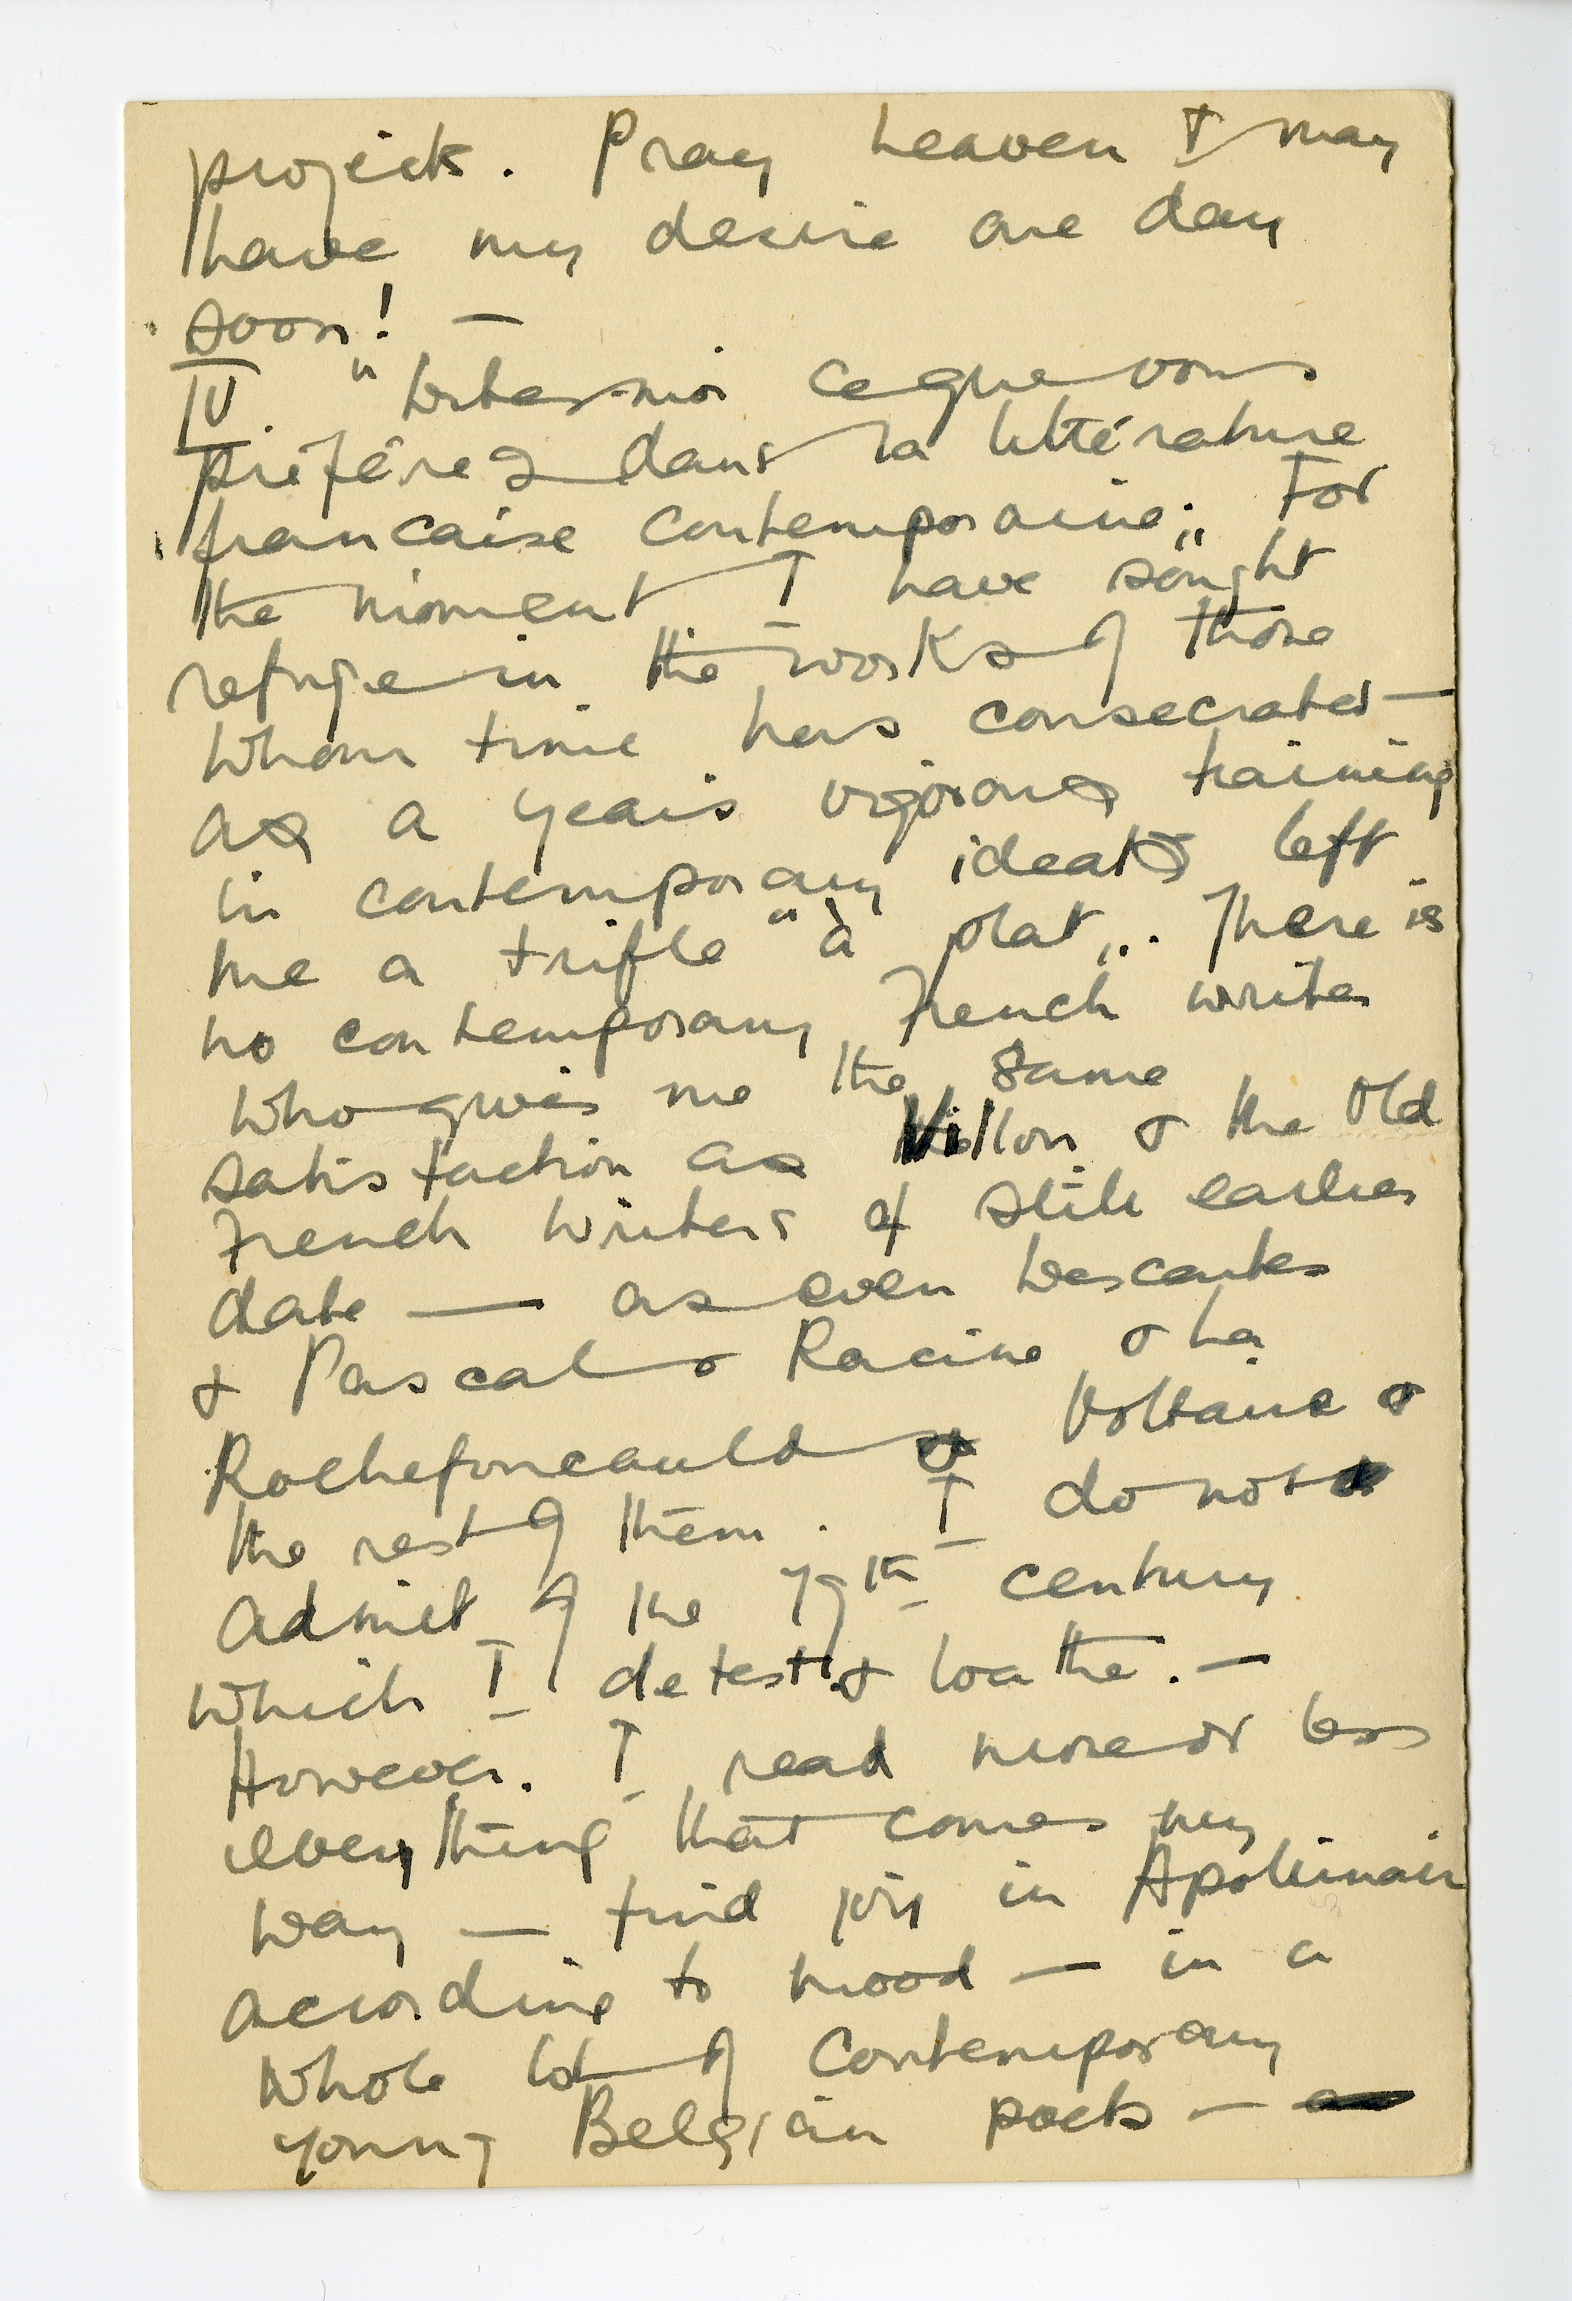 projects. Pray heaven I may
have my desire one day
soon! —
IV. "Dites-moi ce que vous
préférez dans la littérature
francaise contemporaine." For
the moment I have sought
refuge in the works of those
whom time has consecrated —
as a years vigorous training
in contemporary ideals left
me a trifle "à plat". There is
no contemporary French writer
who gives me the same
satisfaction as Villon & the Old
French writers of still earlier
date — as even Descartes
& Pascal & Racine & La
Rochefoucauld & Voltaire &
the rest of them. I do not
admit of the 19th century
which I detest & loathe. —
However. I read more or less
everything that comes my
way — find joy in Apollinair
according to mood — in a
whole lot of contemporary
young Belgian poets —